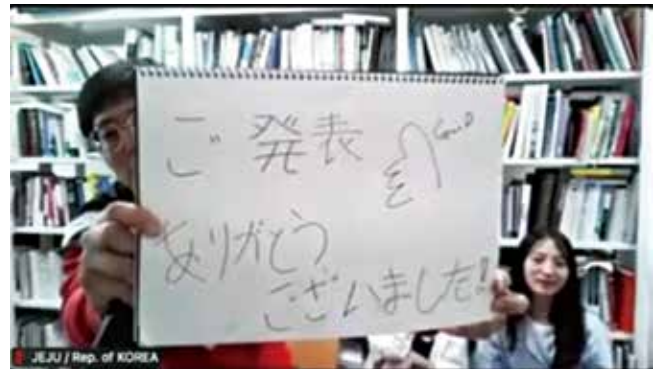 ご発表
Good
ありがとう
ございました!
JEJU / Rep. of KOREA